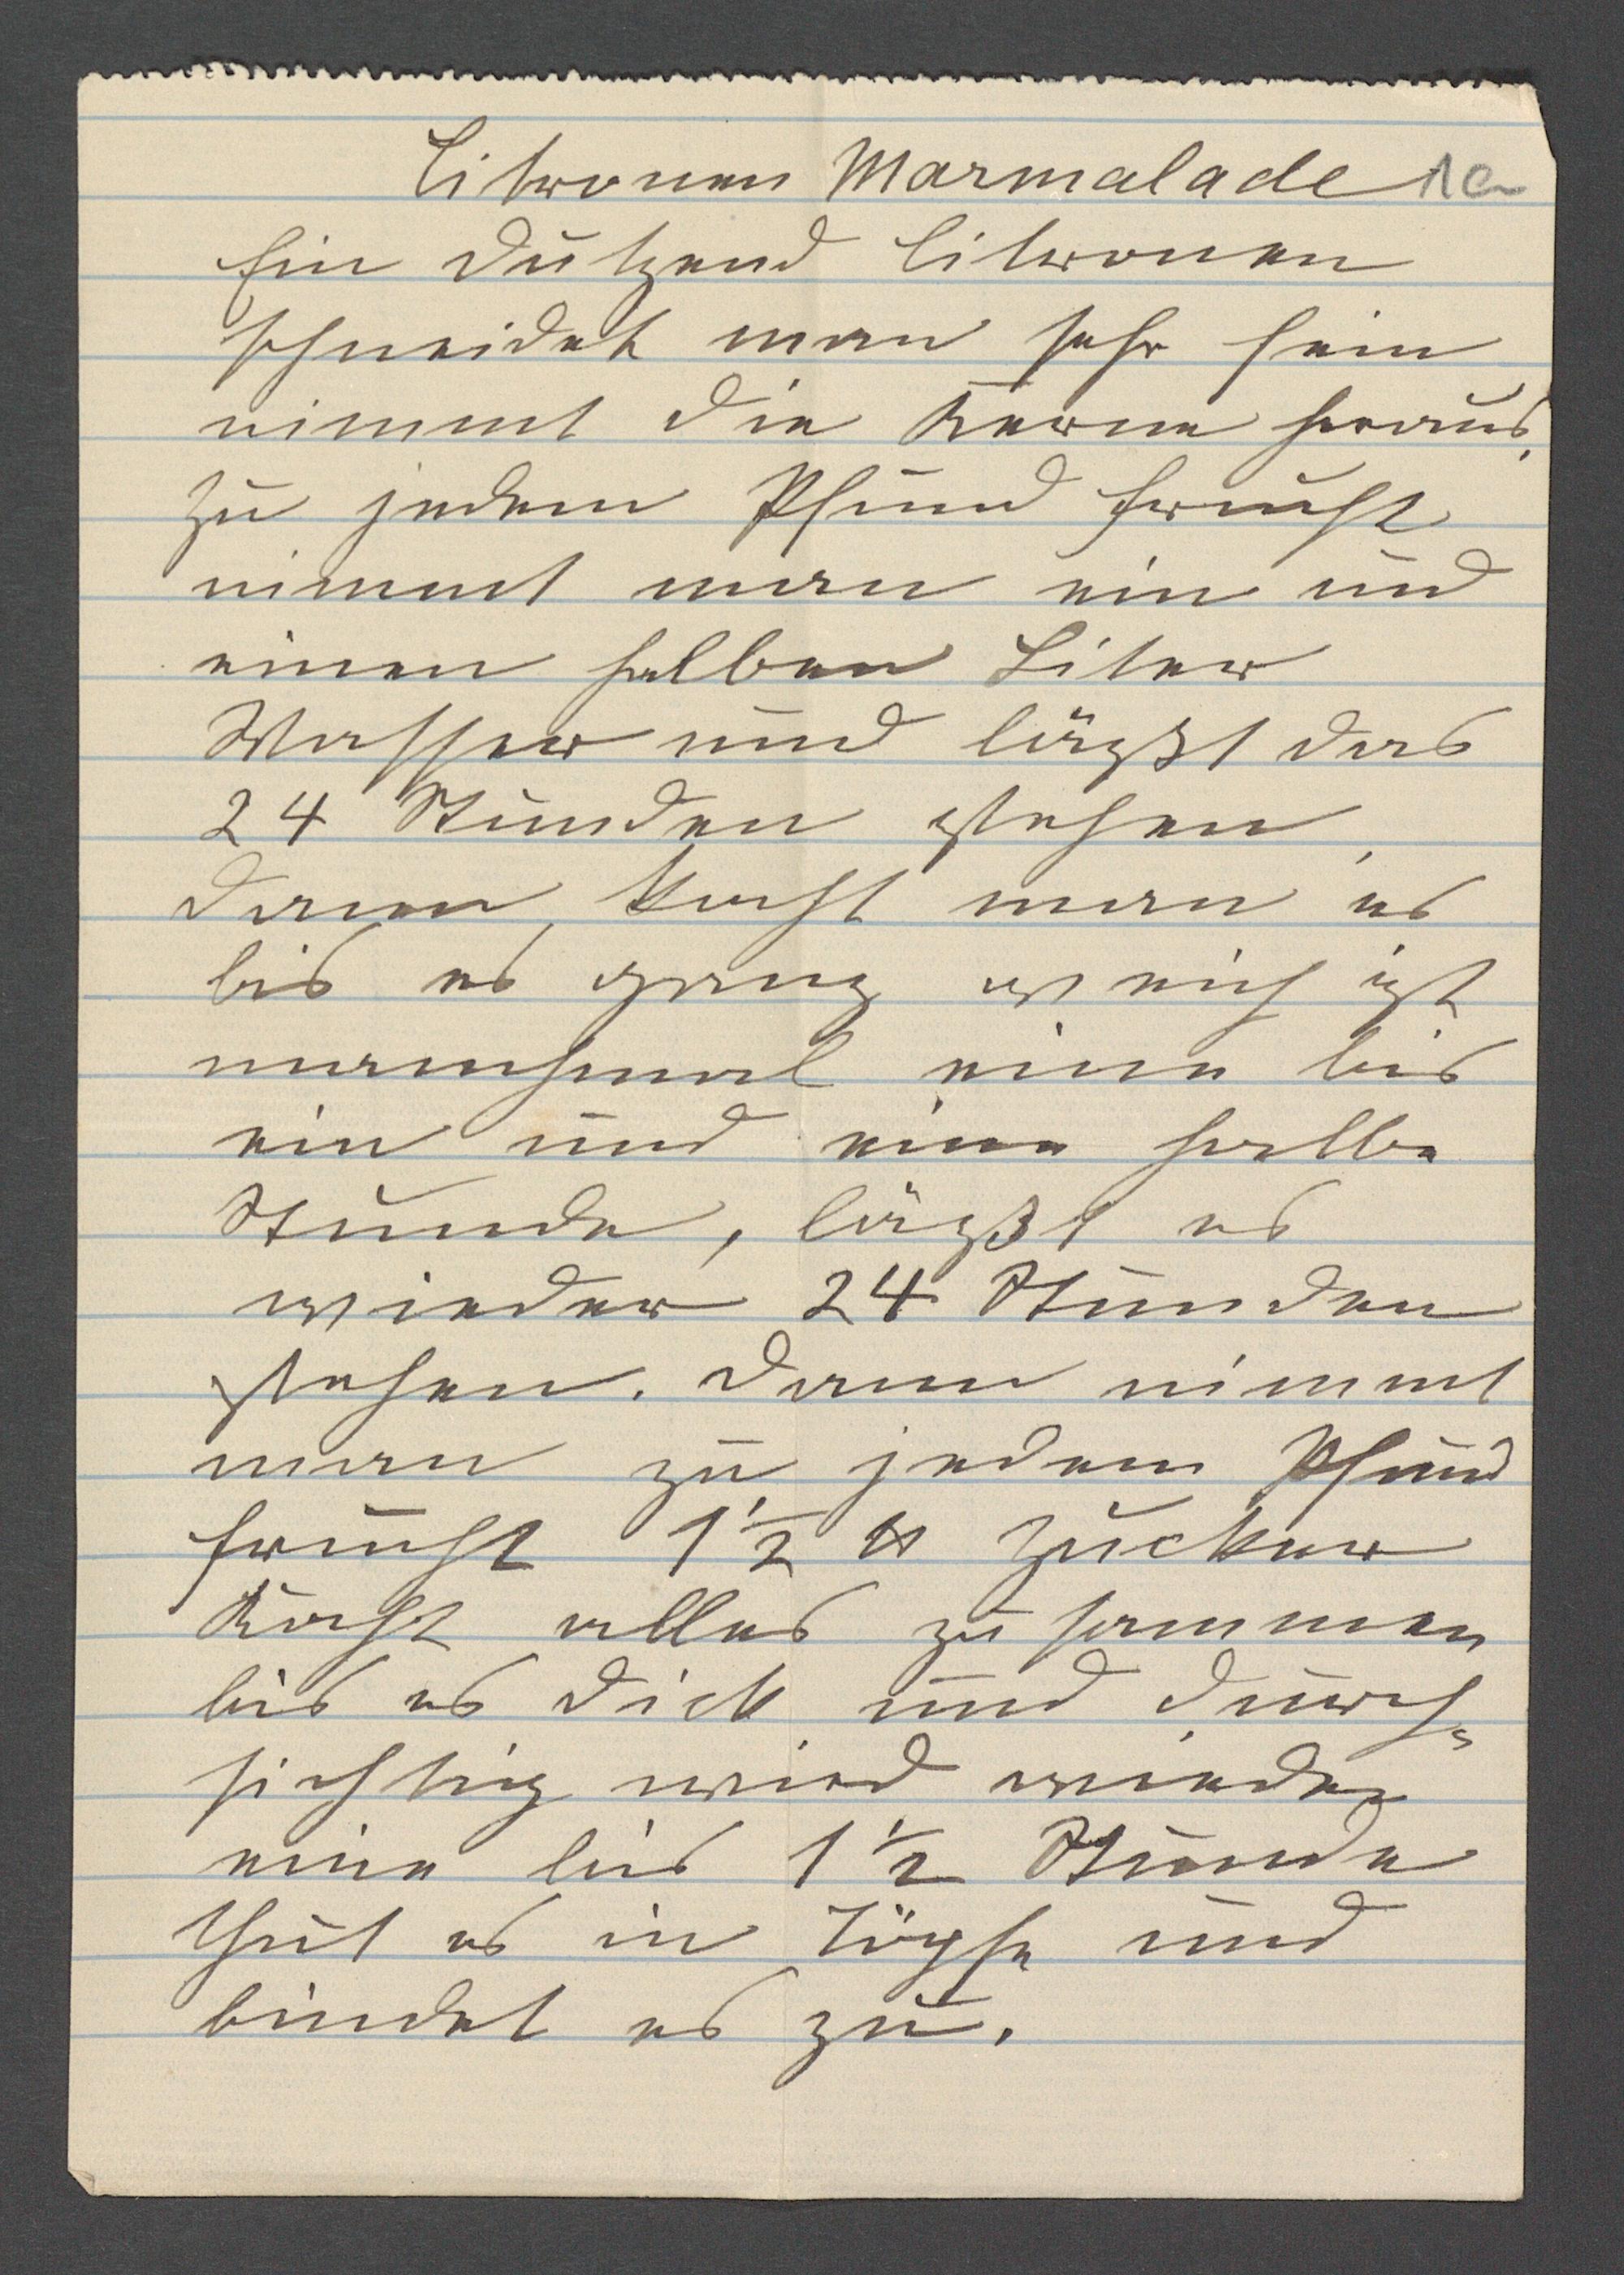 Citronen Marmalade 1a
Ein Dutzend Citronen
schneidet man sehr fein
nimmt die Kerne heraus,
zu jedem Pfund Frucht
nimmt man ein und
einen halben Liter
Wasser und läßt das
24 Stunden stehen,
dann kocht man es
bis es ganz weich ist
manchmal eine bis
ein und eine halbe
Stunde, läßt es
wieder 24 Stunden
stehen. Dann nimmt
man zu jedem Pfund
Frucht 1½ ℔ Zucker
Kocht alles zusammen
bis es dick und durch=
sichtig wird wieder
eine bis 1½ Stunde
thut es in Töpfe und
bindet es zu.